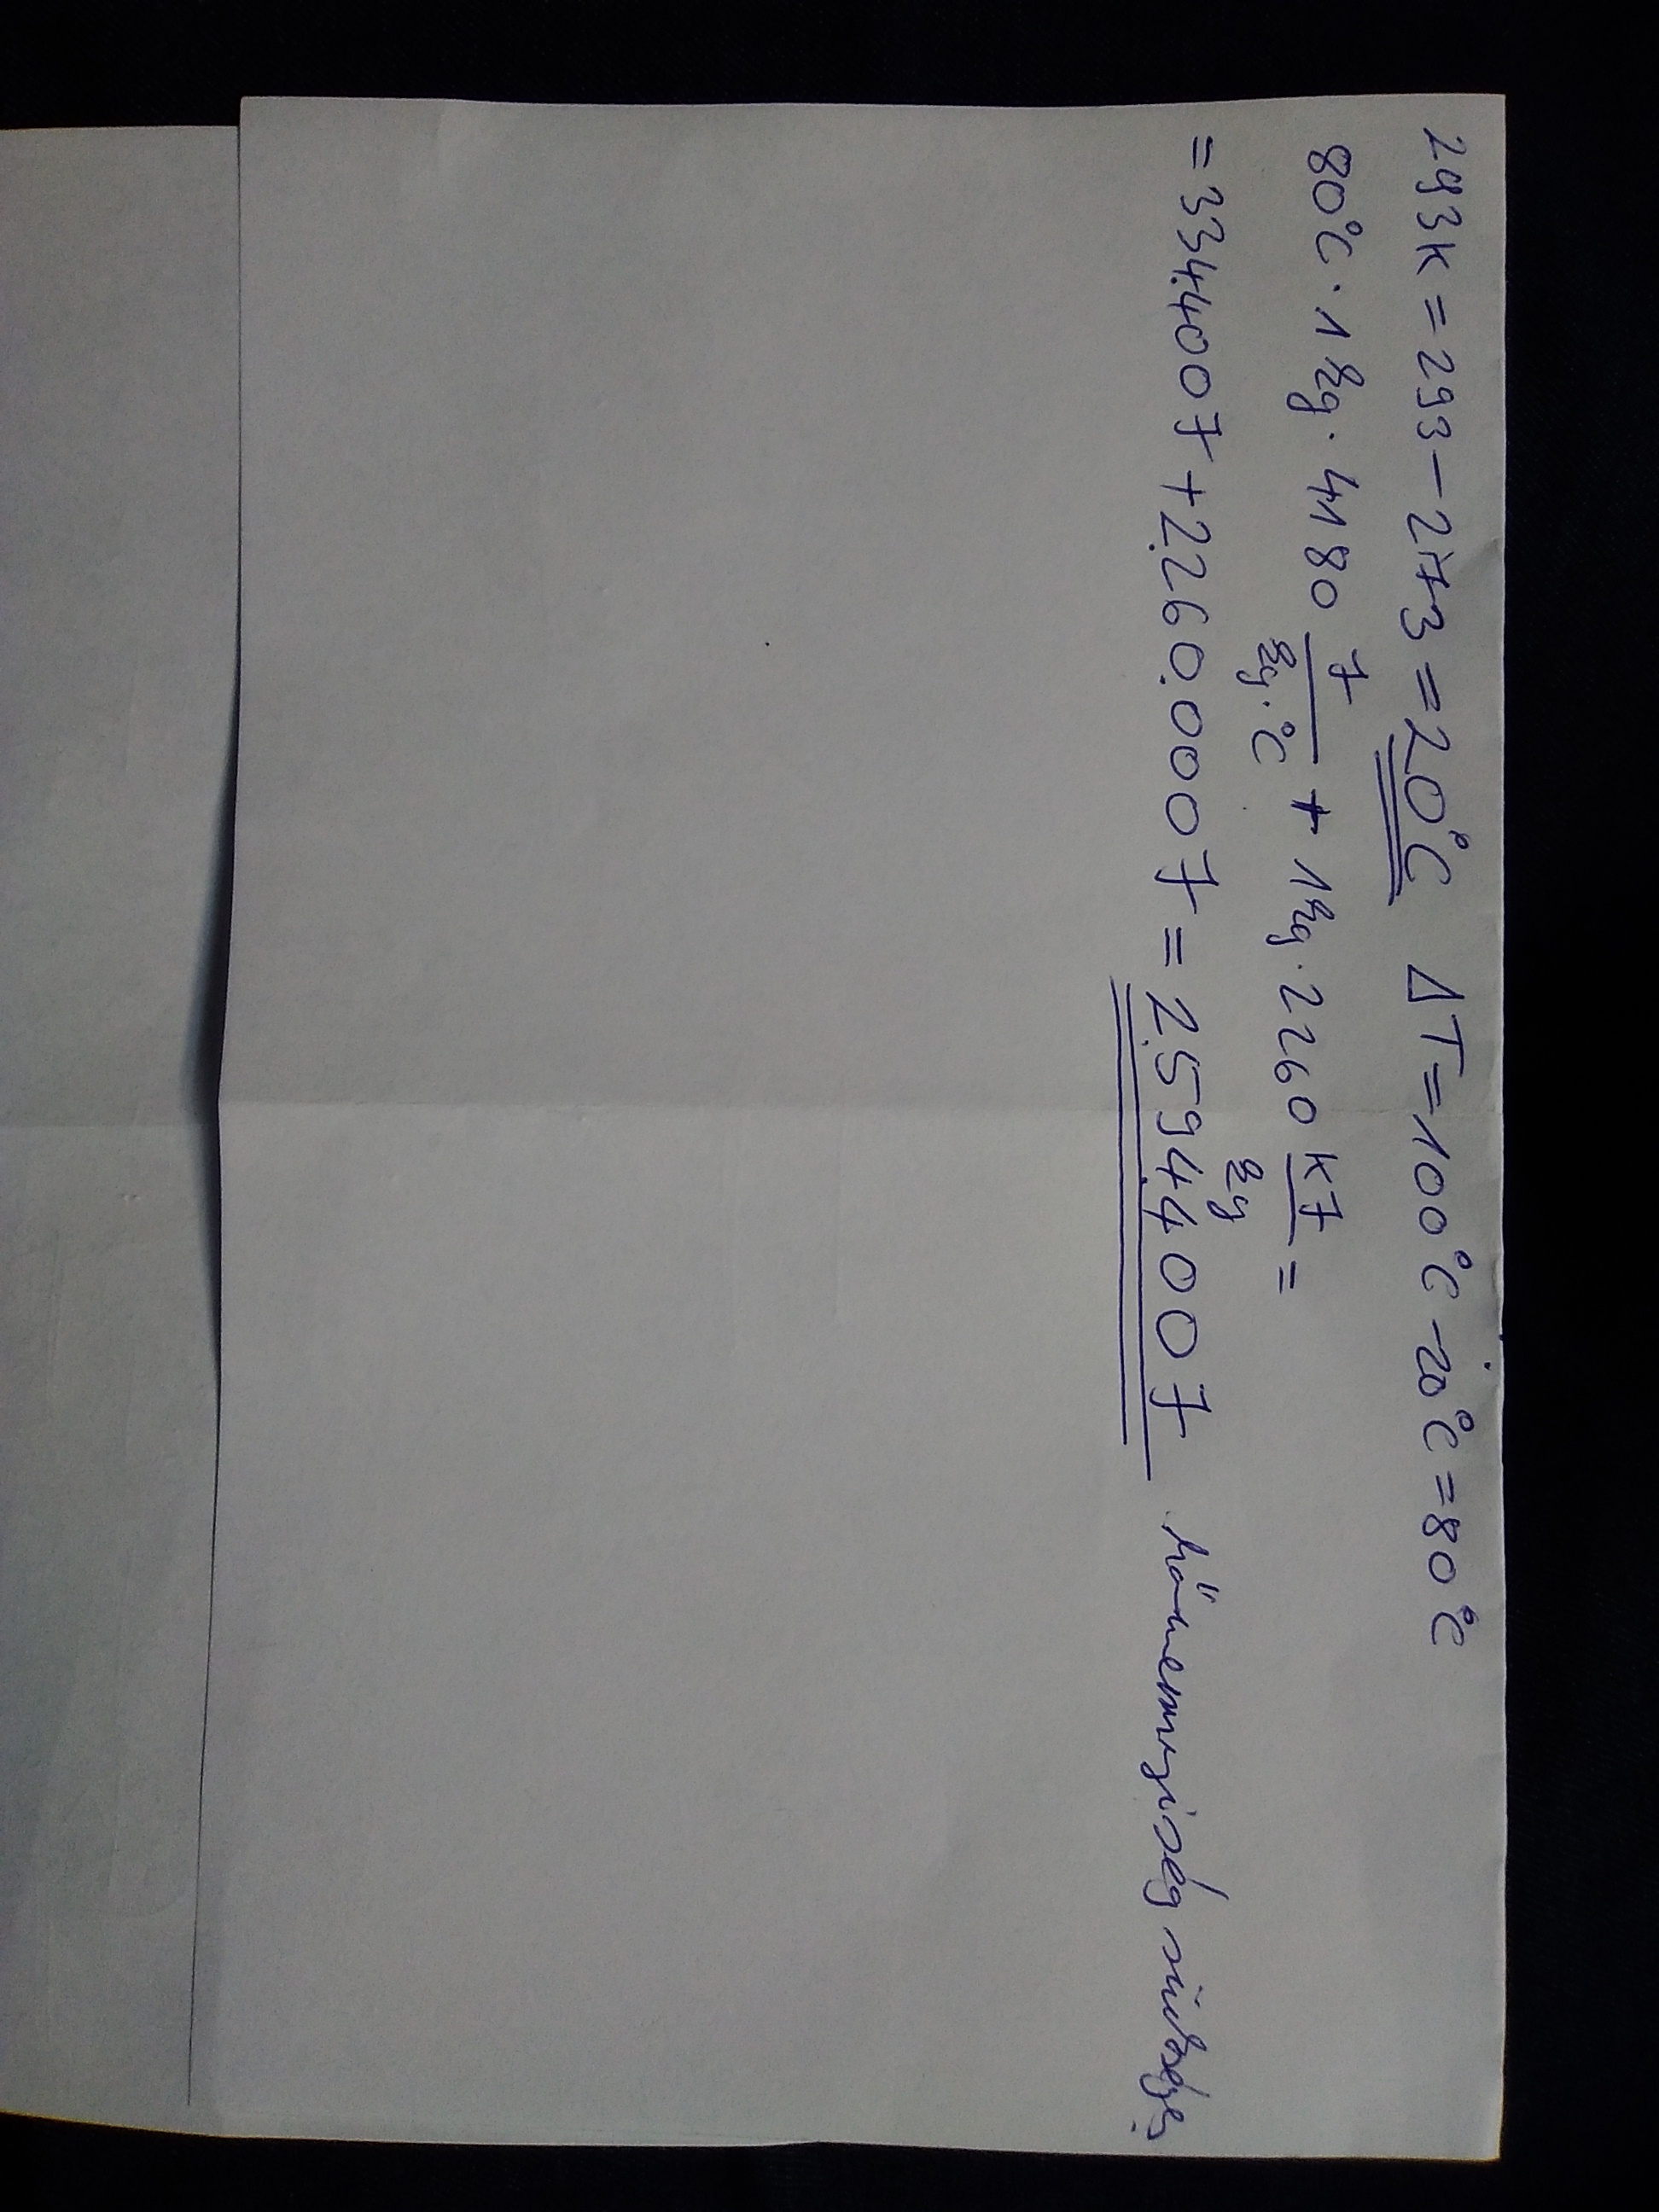 293K = 293 - 273 = 20°C ΔT = 100°C - 20°C = 80°C
80°C · 1kg · 4180 J/kg·°C + 1kg · 2260 KJ/kg =
= 334.400J + 2.260.000J = 2.594.400J hőmennyiség szükséges.